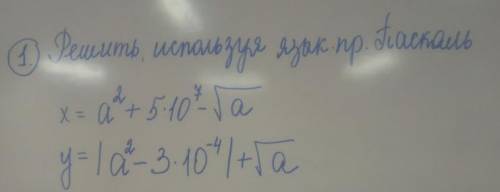 1. Решить, используя язык пр. Паскаль
x = a² + 5·10⁷ - √a
y = |a² - 3·10⁻⁴| + √a